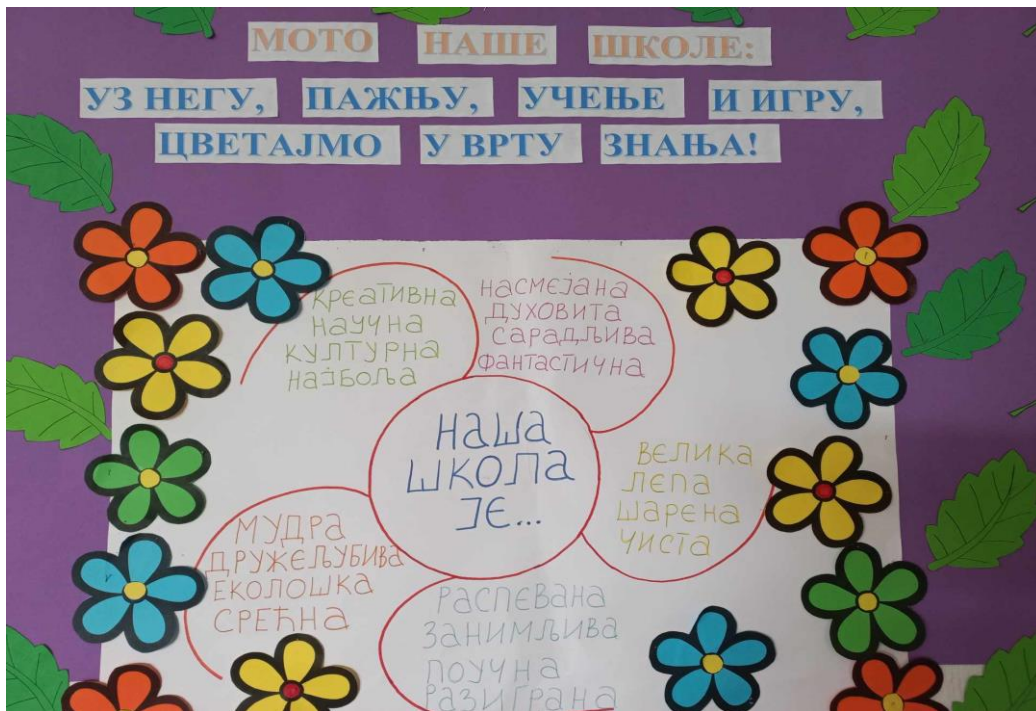 МОТО НАШЕ ШКОЛЕ:
УЗ НЕГУ, ПАЖЊУ, УЧЕЊЕ И ИГРУ,
ЦВЕТАЈМО У ВРТУ ЗНАЊА!
креативна
научна
културна
најбоља
насмејана
духовита
сарадљива
фантастична
наша
школа
је...
велика
лепа
шарена
чиста
мудра
дружељубива
еколошка
срећна
распевана
занимљива
поучна
разиграна